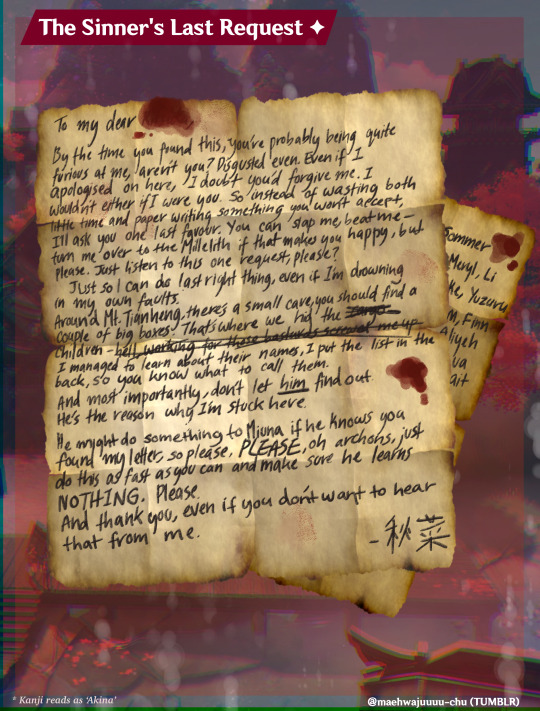 The Sinner's Last Request ✦
To my dear
By the time you found this, you're probably being quite
furious at me, aren't you? Disgusted even. Even if I
apologised on here, I doubt you'd forgive me. I
wouldn't either if I were you. So instead of wasting both
little time and paper writing something you won't accept,
I'll ask you one last favour. You can slap me, beat me-
turn me over to the Millelith if that makes you happy, but
please. Just listen to this one request, please?
Just so I can do last right thing, even if I'm drowning
in my own faults.
Around Mt. Tianheng, there's a small cave, you should find a
couple of big boxes. That's where we hid the
children-hell, working for those bastards screwed me up-
I managed to learn about their names, I put the list in the
back, so you know what to call them.
And most importantly, don't let him find out.
He's the reason why I'm stuck here.
He might do something to Miuna if he knows you
found my letter, so please, PLEASE, oh archons, just
do this as fast as you can and make sure he learns
NOTHING. Please.
And thank you, even if you don't want to hear
that from me.
- 秋菜
Sommer
Meryl, Li
ke, Yuzuru
m, Finn
Aliyeh
ua
ait
* Kanji reads as 'Akina'
@maehwajuuuu-chu (TUMBLR)